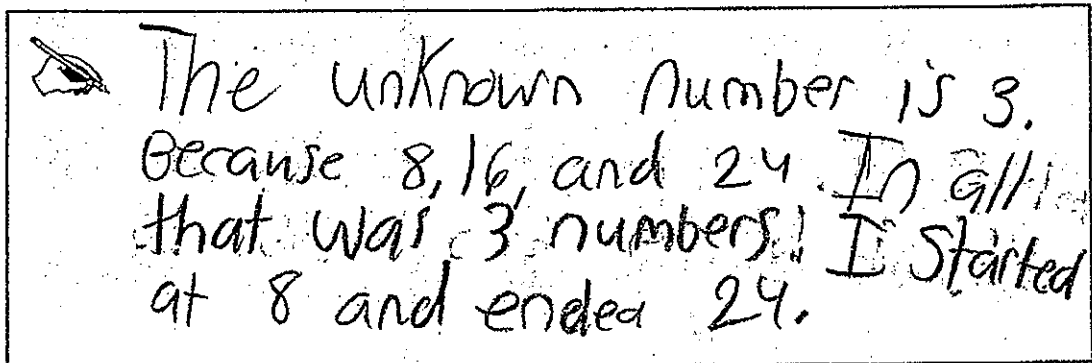 The unknown number is 3.
Because 8, 16, and 24. In all
that was 3 numbers! I started
at 8 and ended 24.